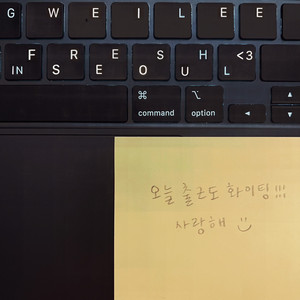 G W E I L E E
F R E S H <3
IN S E O U L
⌘ ⌥
command option
◄ ▲ ▼
오늘 출근도 화이팅!!!
사랑해 :)